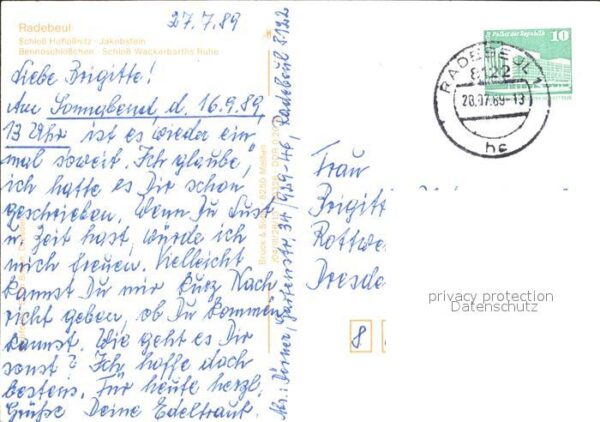 27.7.89
Radebeul
Schloß Hoflößnitz · Jakobstein
Bennoschlößchen · Schloß Wackerbarths Ruhe
Liebe Brigitte!
Am Sonnabend, d. 16.9.89,
13 Uhr ist es wieder ein
mal soweit. Ich glaube,
ich hatte es Dir schon
geschrieben. Wenn Du Lust
u Zeit hast, würde ich
mich freuen. Vielleicht
kannst Du mir kurz Nach
richt geben, ob Du kommen
kannst. Wie geht es Dir
sonst? Ich hoffe doch
bestens. Für heute herzl.
Grüße Deine Edeltraut.
Gartenstr. 34 / 929-46, Radebeul 8122
Bruck & Sohn 8250 Meißen
Palast der Republik 10
RADEBEUL 1
8122
28.07.89-13
hc
Frau
Brigitt
Rottwe
Dresde
8
privacy protection
Datenschutz